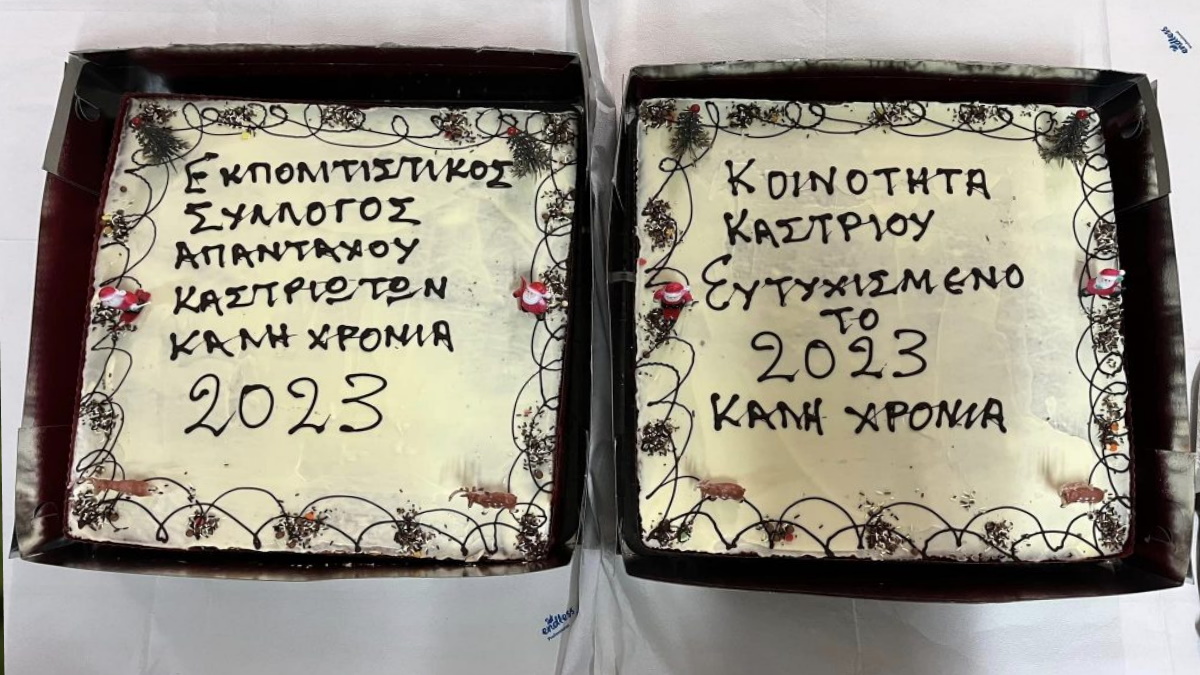 ΕΚΠΟΛΙΤΙΣΤΙΚΟΣ
ΣΥΛΛΟΓΟΣ
ΑΠΑΝΤΑΧΟΥ
ΚΑΣΤΡΙΩΤΩΝ
ΚΑΛΗ ΧΡΟΝΙΑ
2023
ΚΟΙΝΟΤΗΤΑ
ΚΑΣΤΡΙΟΥ
ΕΥΤΥΧΙΣΜΕΝΟ
ΤΟ
2023
ΚΑΛΗ ΧΡΟΝΙΑ
endless
endless